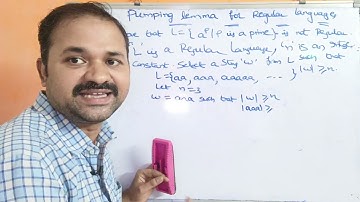 Pumping lemma for Regular languages
ove that L = {aᵖ/P is a prime} is not Regular
'L' is a Regular Language, 'n' is an
Constant. Select a string 'w' from L such that
L = {aa, aaa, aaaaa, ---- } |w| ≥ n
Let n = 3
w = aaa such that |w| ≥ n
|aaa| ≥